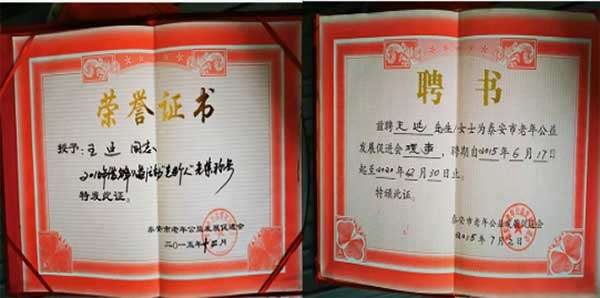 荣誉证书
授予：王
同志
特发此证。
泰安市老年公益发展促进会
二〇一五年十二月
聘书
兹聘
先生/女士为泰安市老年公益
发展促进会理事，聘期自2015年6月17日
起至2020年12月30日止。
特颁此证。
泰安市老年公益发展促进会
2015年7月2日